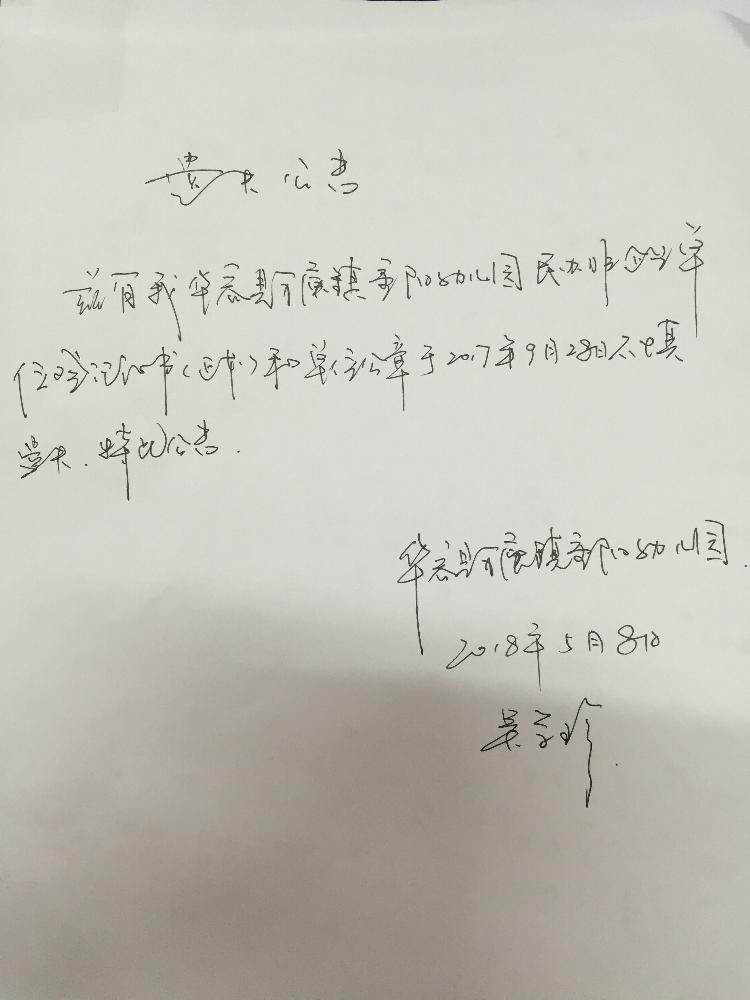 遗失公告
兹有我华容县万庾镇幼儿园民办非企业单
位登记证书(正本)和单位公章于2017年9月28日不慎
遗失.特此公告.
华容县万庾镇幼儿园.
2018年5月8日
吴珍.